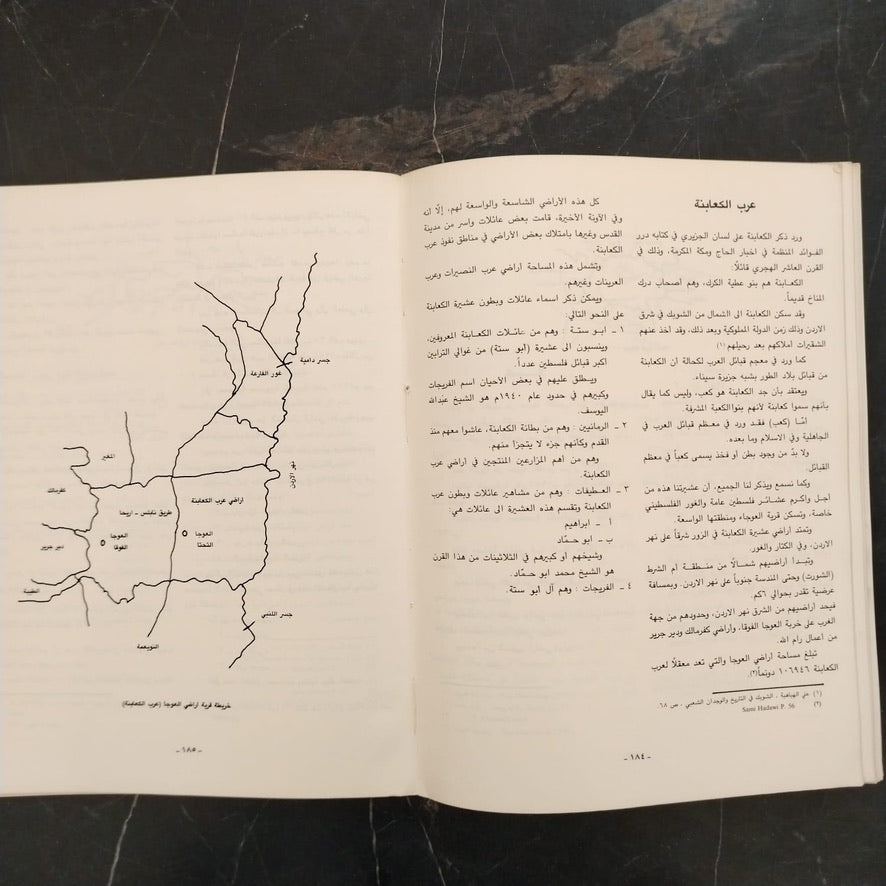 عرب الكعابنة
ورد ذكر الكعابنة على لسان الجزيري في كتابه درر
الفوائد المنظمة في اخبار الحاج ومكة المكرمة، وذلك في
القرن العاشر الهجري قائلاً:
الكعابنة هم بنو عطية الكرك، وهم أصحاب درك
المناخ قديماً.
وقد سكن الكعابنة الى الشمال من الشوبك في شرق
الاردن وذلك زمن الدولة المملوكية وبعد ذلك، وقد اخذ عنهم
الشقيرات املاكهم بعد رحيلهم (١)
كما ورد في معجم قبائل العرب لكحالة أن الكعابنة
من قبائل بلاد الطور بشبه جزيرة سيناء.
ويعتقد بأن جد الكعابنة هو كعب، وليس كما يقال
بأنهم سموا كعابنة لأنهم بنوا الكعبة المشرفة.
امّا (كعب) فقد ورد في معظم قبائل العرب في
الجاهلية وفي الاسلام وما بعده.
ولا بدّ من وجود بطن أو فخذ يسمى كعباً في معظم
القبائل.
وكما نسمع ويذكر لنا الجميع، أن عشيرتنا هذه من
اجل واكرم عشائر فلسطين عامة والغور الفلسطيني
خاصة، وتسكن قرية العوجاء ومنطقتها الواسعة.
وتمتد أراضي عشيرة الكعابنة في الزور شرقاً على نهر
الاردن، وفي الكتار والغور.
وتبدأ أراضيهم شمالاً من منطقة ام الشرط
(الشورت) وحتى المندسة جنوباً على نهر الاردن. وبمسافة
عرضية تقدر بحوالي ٦كم.
فيحد أراضيهم من الشرق نهر الاردن، وحدودهم من جهة
الغرب على خربة العوجا الفوقا، وأراضي كفرمالك ودير جرير
من أعمال رام الله.
تبلغ مساحة أراضي العوجا والتي تعد معقلاً لعرب
الكعابنة ١٠٦٩٤٦ دونماً(٢).
(١) علي الهباهبة ، الشوبك في التاريخ والوجدان الشعبي ، ص ٦٨.
(٢) Sami Hadawi P. 56
كل هذه الأراضي الشاسعة والواسعة لهم، إلّا انه
وفي الآونة الأخيرة، قامت بعض عائلات واسر من مدينة
القدس وغيرها بامتلاك بعض الأراضي في مناطق نفوذ عرب
الكعابنة.
وتشمل هذه المساحة اراضي عرب النصيرات وعرب
العرينات وغيرهم.
ويمكن ذكر اسماء عائلات وبطون عشيرة الكعابنة
على النحو التالي:
١ - ابو ستة : وهم من عائلات الكعابنة المعروفين.
وينسبون الى عشيرة (ابو ستة) من غوالي الترابين
اكبر قبائل فلسطين عدداً.
ويطلق عليهم في بعض الأحيان اسم الفريجات
وكبيرهم في حدود عام ١٩٤٠م هو الشيخ عبدالله
اليوسف.
٢ - الرمانيين : وهم من بطانة الكعابنة، عاشوا معهم منذ
القدم وكأنهم جزء لا يتجزا منهم.
وهم من أهم المزارعين المنتجين في اراضي عرب
الكعابنة.
٣ - العطيفات : وهم من مشاهير عائلات وبطون عرب
الكعابنة وتقسم هذه العشيرة الى عائلات هي:
أ - ابراهيم
ب - ابو حمّاد
وشيخهم أو كبيرهم في الثلاثينات من هذا القرن
هو الشيخ محمد ابو حمّاد.
٤ - الفريجات : وهم آل ابو ستة.
- ١٨٤ -
جسر دامية
غور الفارعة
المغير
نهر الاردن
كفرمالك
أراضي عرب الكعابنة
طريق نابلس - اريحا
العوجا
الفوقا
العوجا
التحتا
دير جرير
الطيبة
جسر اللنبي
النويعمة
خريطة قرية اراضي العوجا (عرب الكعابنة)
- ١٨٥ -